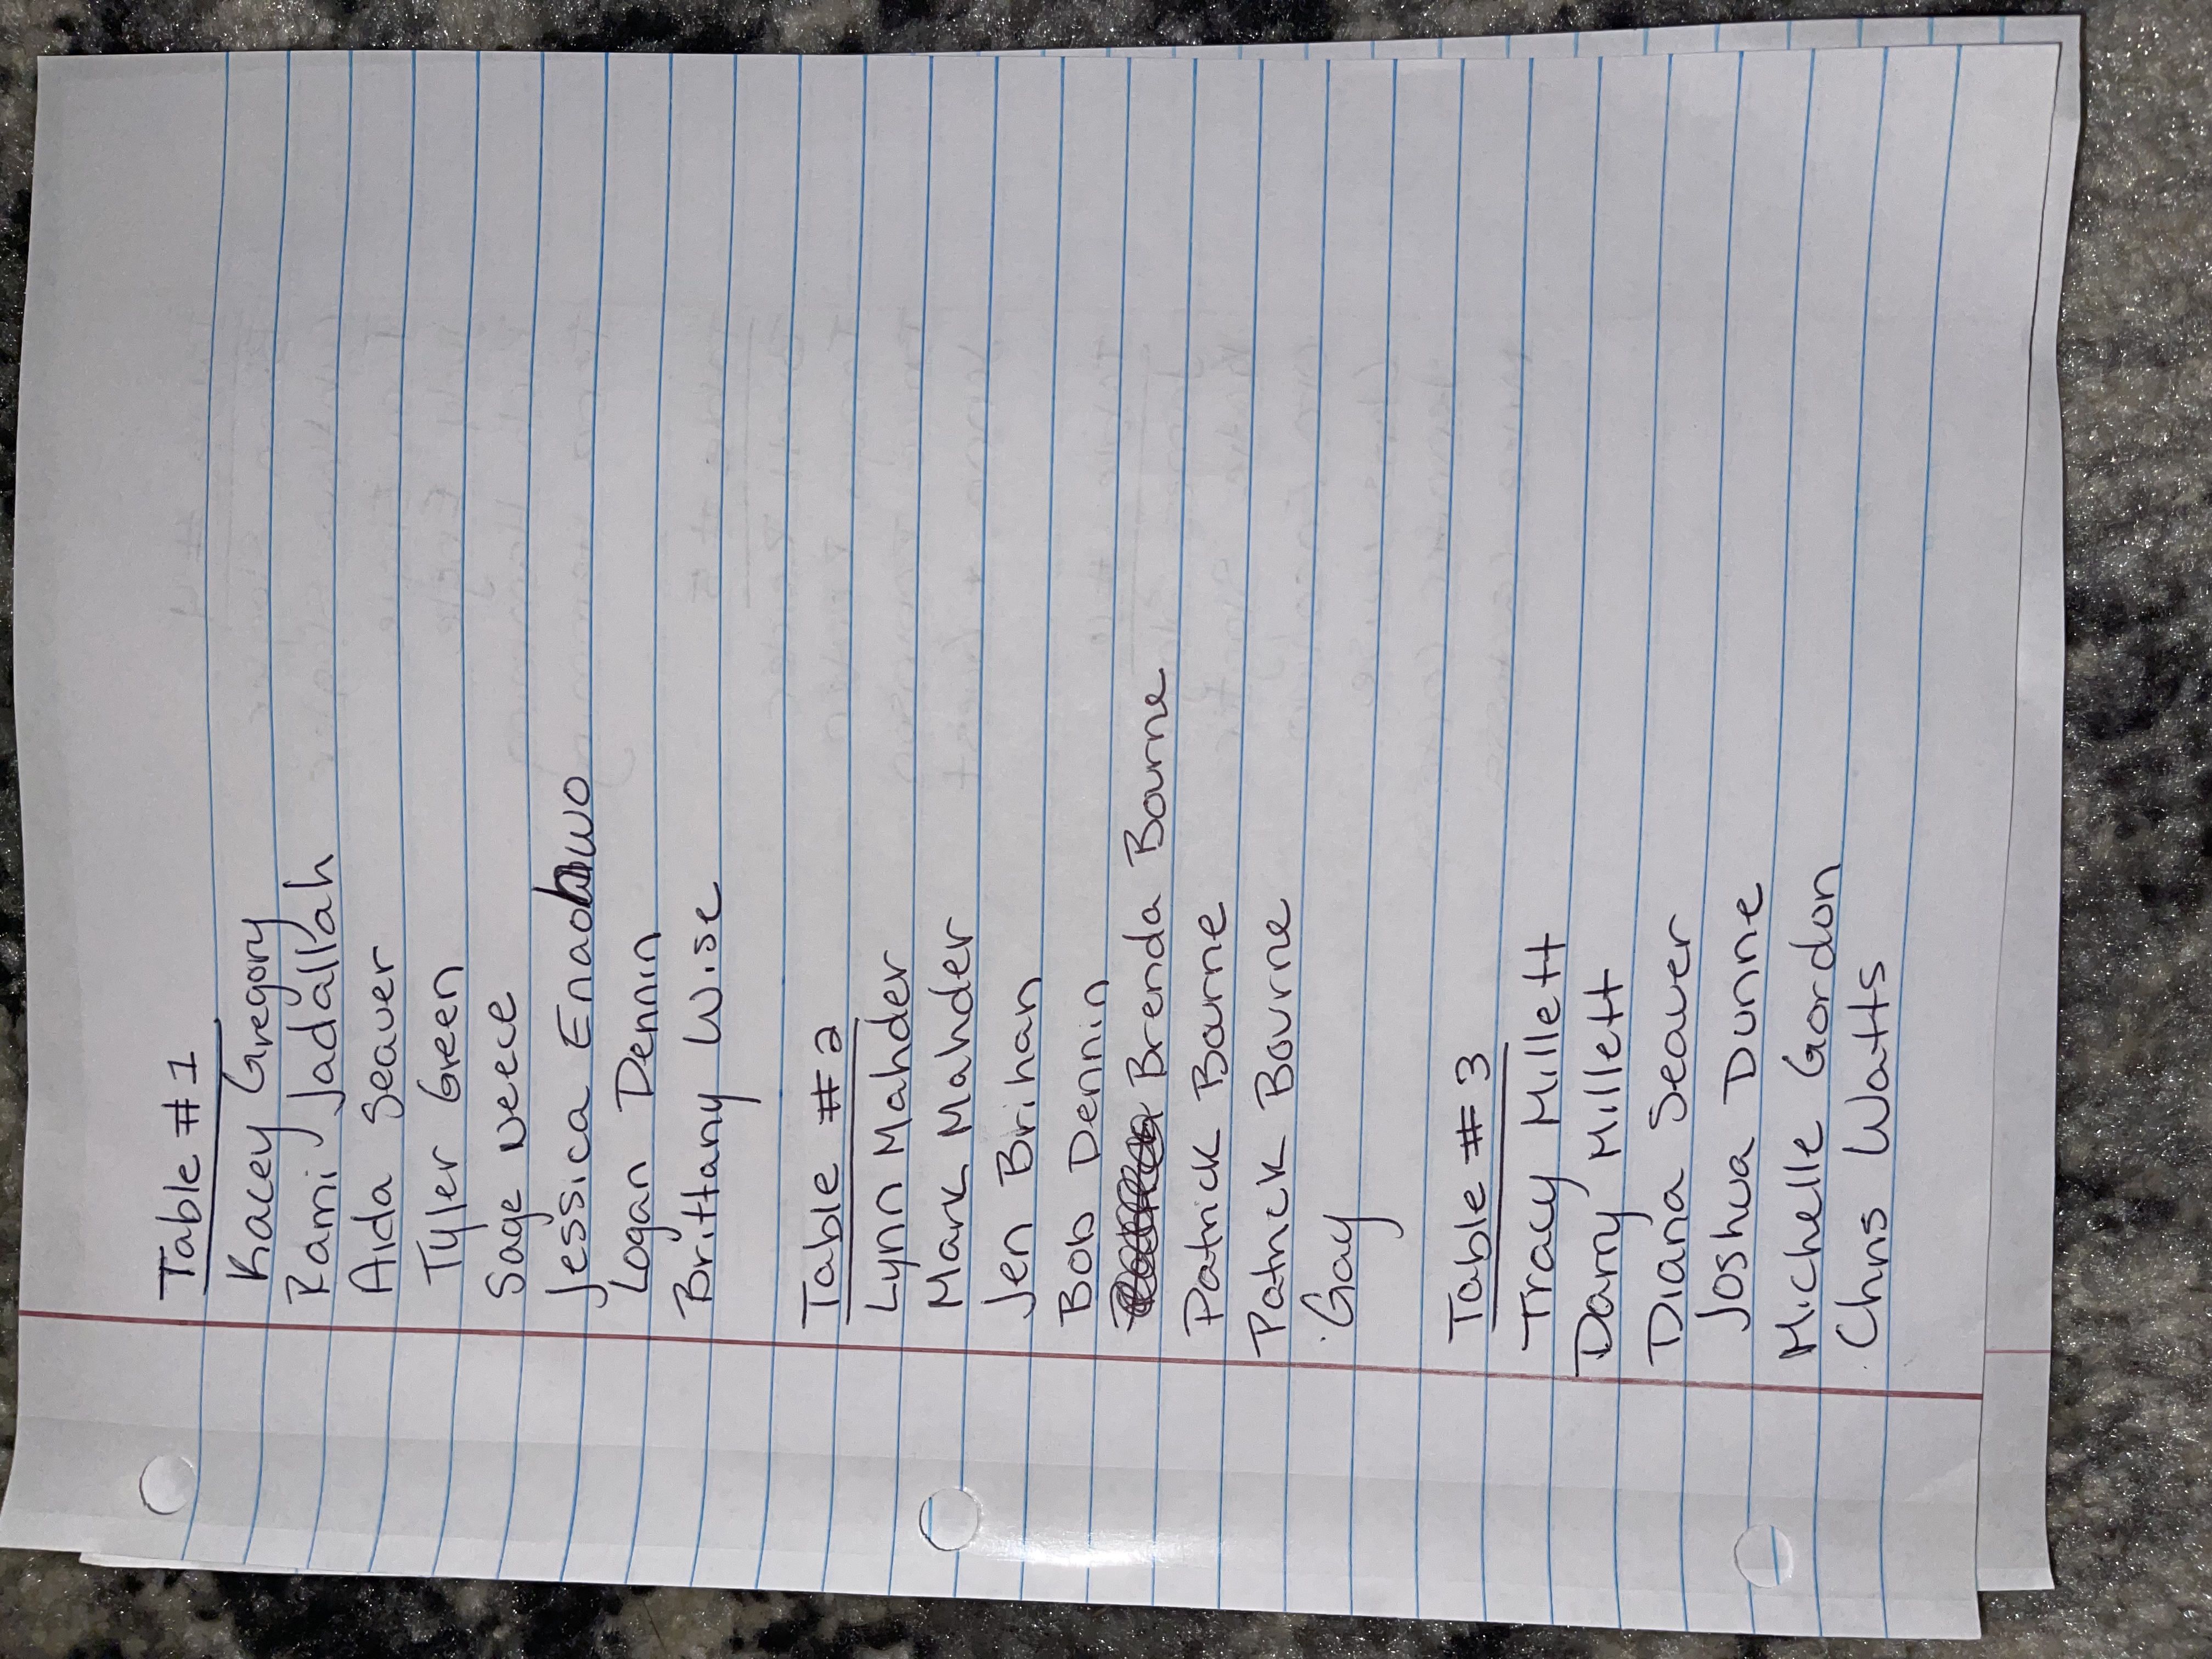 Table #1
Kacey Gregory
Rami Jadallah
Aida Seaver
Tyler Green
Sage Neece
Jessica
Logan Dennin
Brittany Wise
Table #2
Lynn Mahder
Mark Mahder
Jen Brihan
Bob Dennin
Brenda Bourne
Patrick Bourne
Patrick Bourne
Gay
Table #3
Tracy Millett
Darry Millett
Diana Seaver
Joshua Dunne
Michelle Gordon
Chris Watts